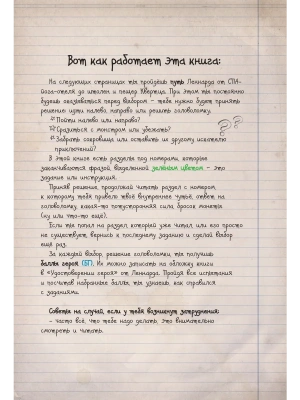 Вот как работает эта книга:
На следующих страницах ты пройдёшь путь Леннарда от СПА-
йога-отеля до штолен и пещер Квертица. При этом ты постоянно
будешь оказываться перед выбором – тебе нужно будет принять
решение: идти налево, направо или решить головоломку.
Пойти налево или направо?
Сразиться с монстром или убежать?
Забрать сокровища или оставить их другому искателю
приключений?
??
В этой книге есть разделы под номерами, которые
заканчиваются фразой, выделенной зелёным цветом – это
задание или инструкция.
Приняв решение, продолжай читать раздел с номером,
к которому тебя привело твоё внутреннее чутьё, ответ на
головоломку, какая-то потусторонняя сила, бросок монетки
(ну или что-то ещё).
Если ты попал на раздел, который уже читал, или его просто
не существует, вернись к последнему заданию и сделай выбор
ещё раз.
За каждый выбор, решение головоломки ты получишь
баллы героя (БГ). Их можно записать на обложку книги
в «Удостоверении героя» от Леннарда. Пройдя все испытания
и посчитав набранные баллы, ты узнаешь, как справился
с заданиями.
Советы на случай, если у тебя возникнут затруднения:
– часто всё, что тебе надо делать, это внимательно
смотреть и читать.